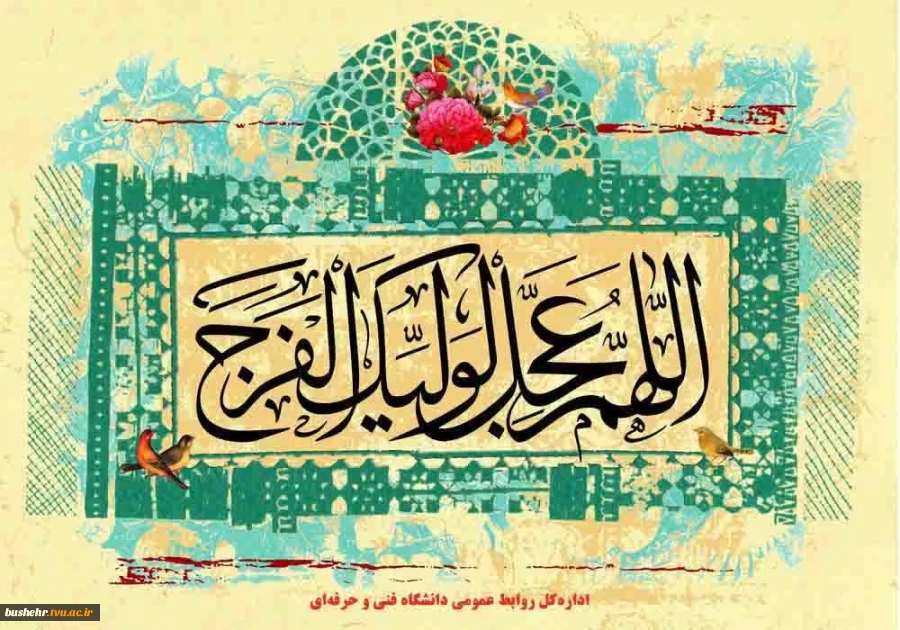 اللّهُمَّ عَجِّل لِوَلیِّکَ الفَرَجَ
اداره‌کل روابط عمومی دانشگاه فنی و حرفه‌ای
bushehr.tvu.ac.ir